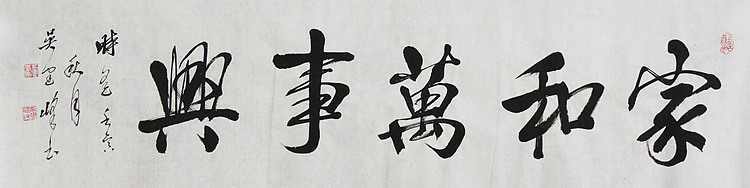 家和萬事興
時在壬寅
秋月
吴峰书